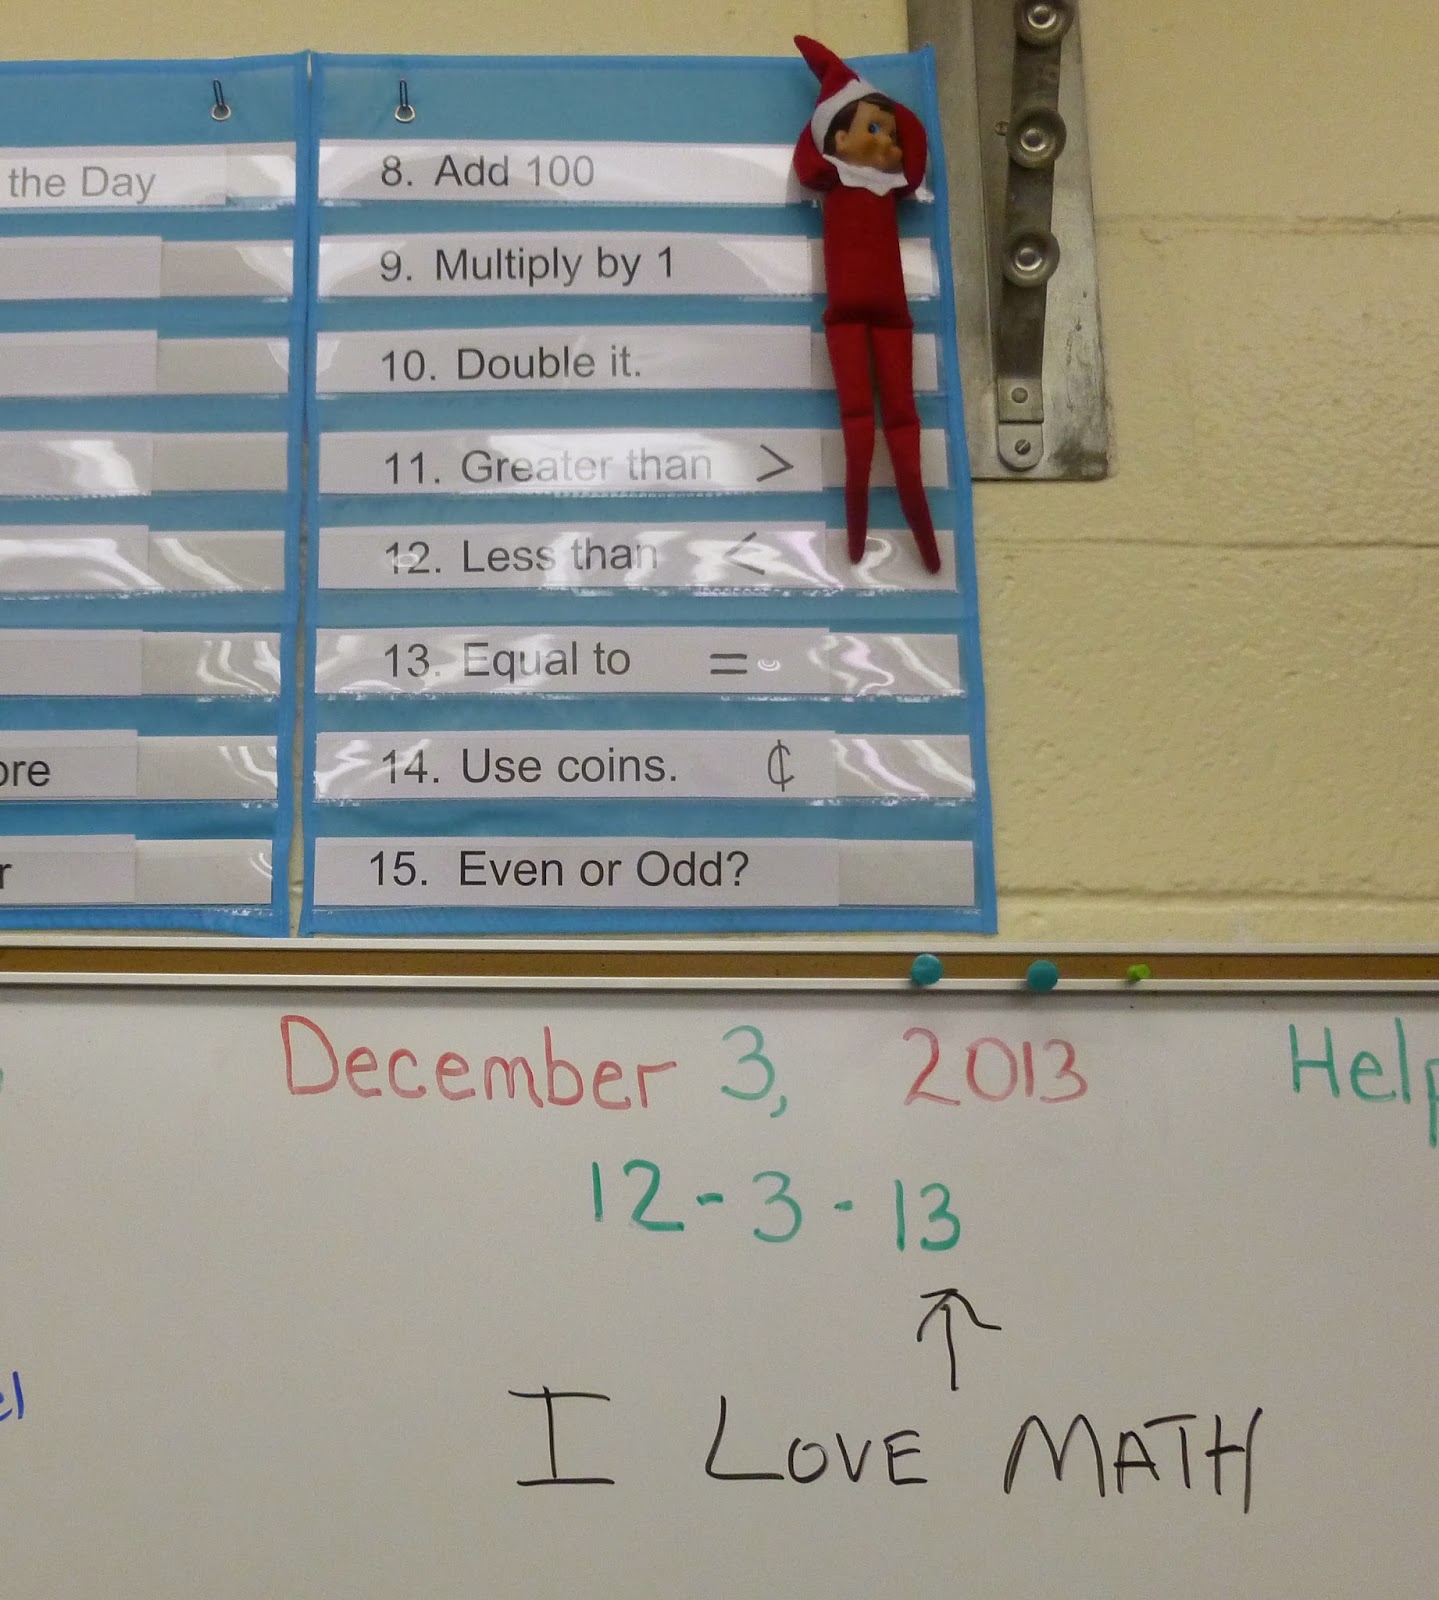 the Day
ore
r
8. Add 100
9. Multiply by 1
10. Double it.
11. Greater than >
12. Less than <
13. Equal to =
14. Use coins. ¢
15. Even or Odd?
December 3, 2013
Help
12-3-13
el
I LOVE MATH